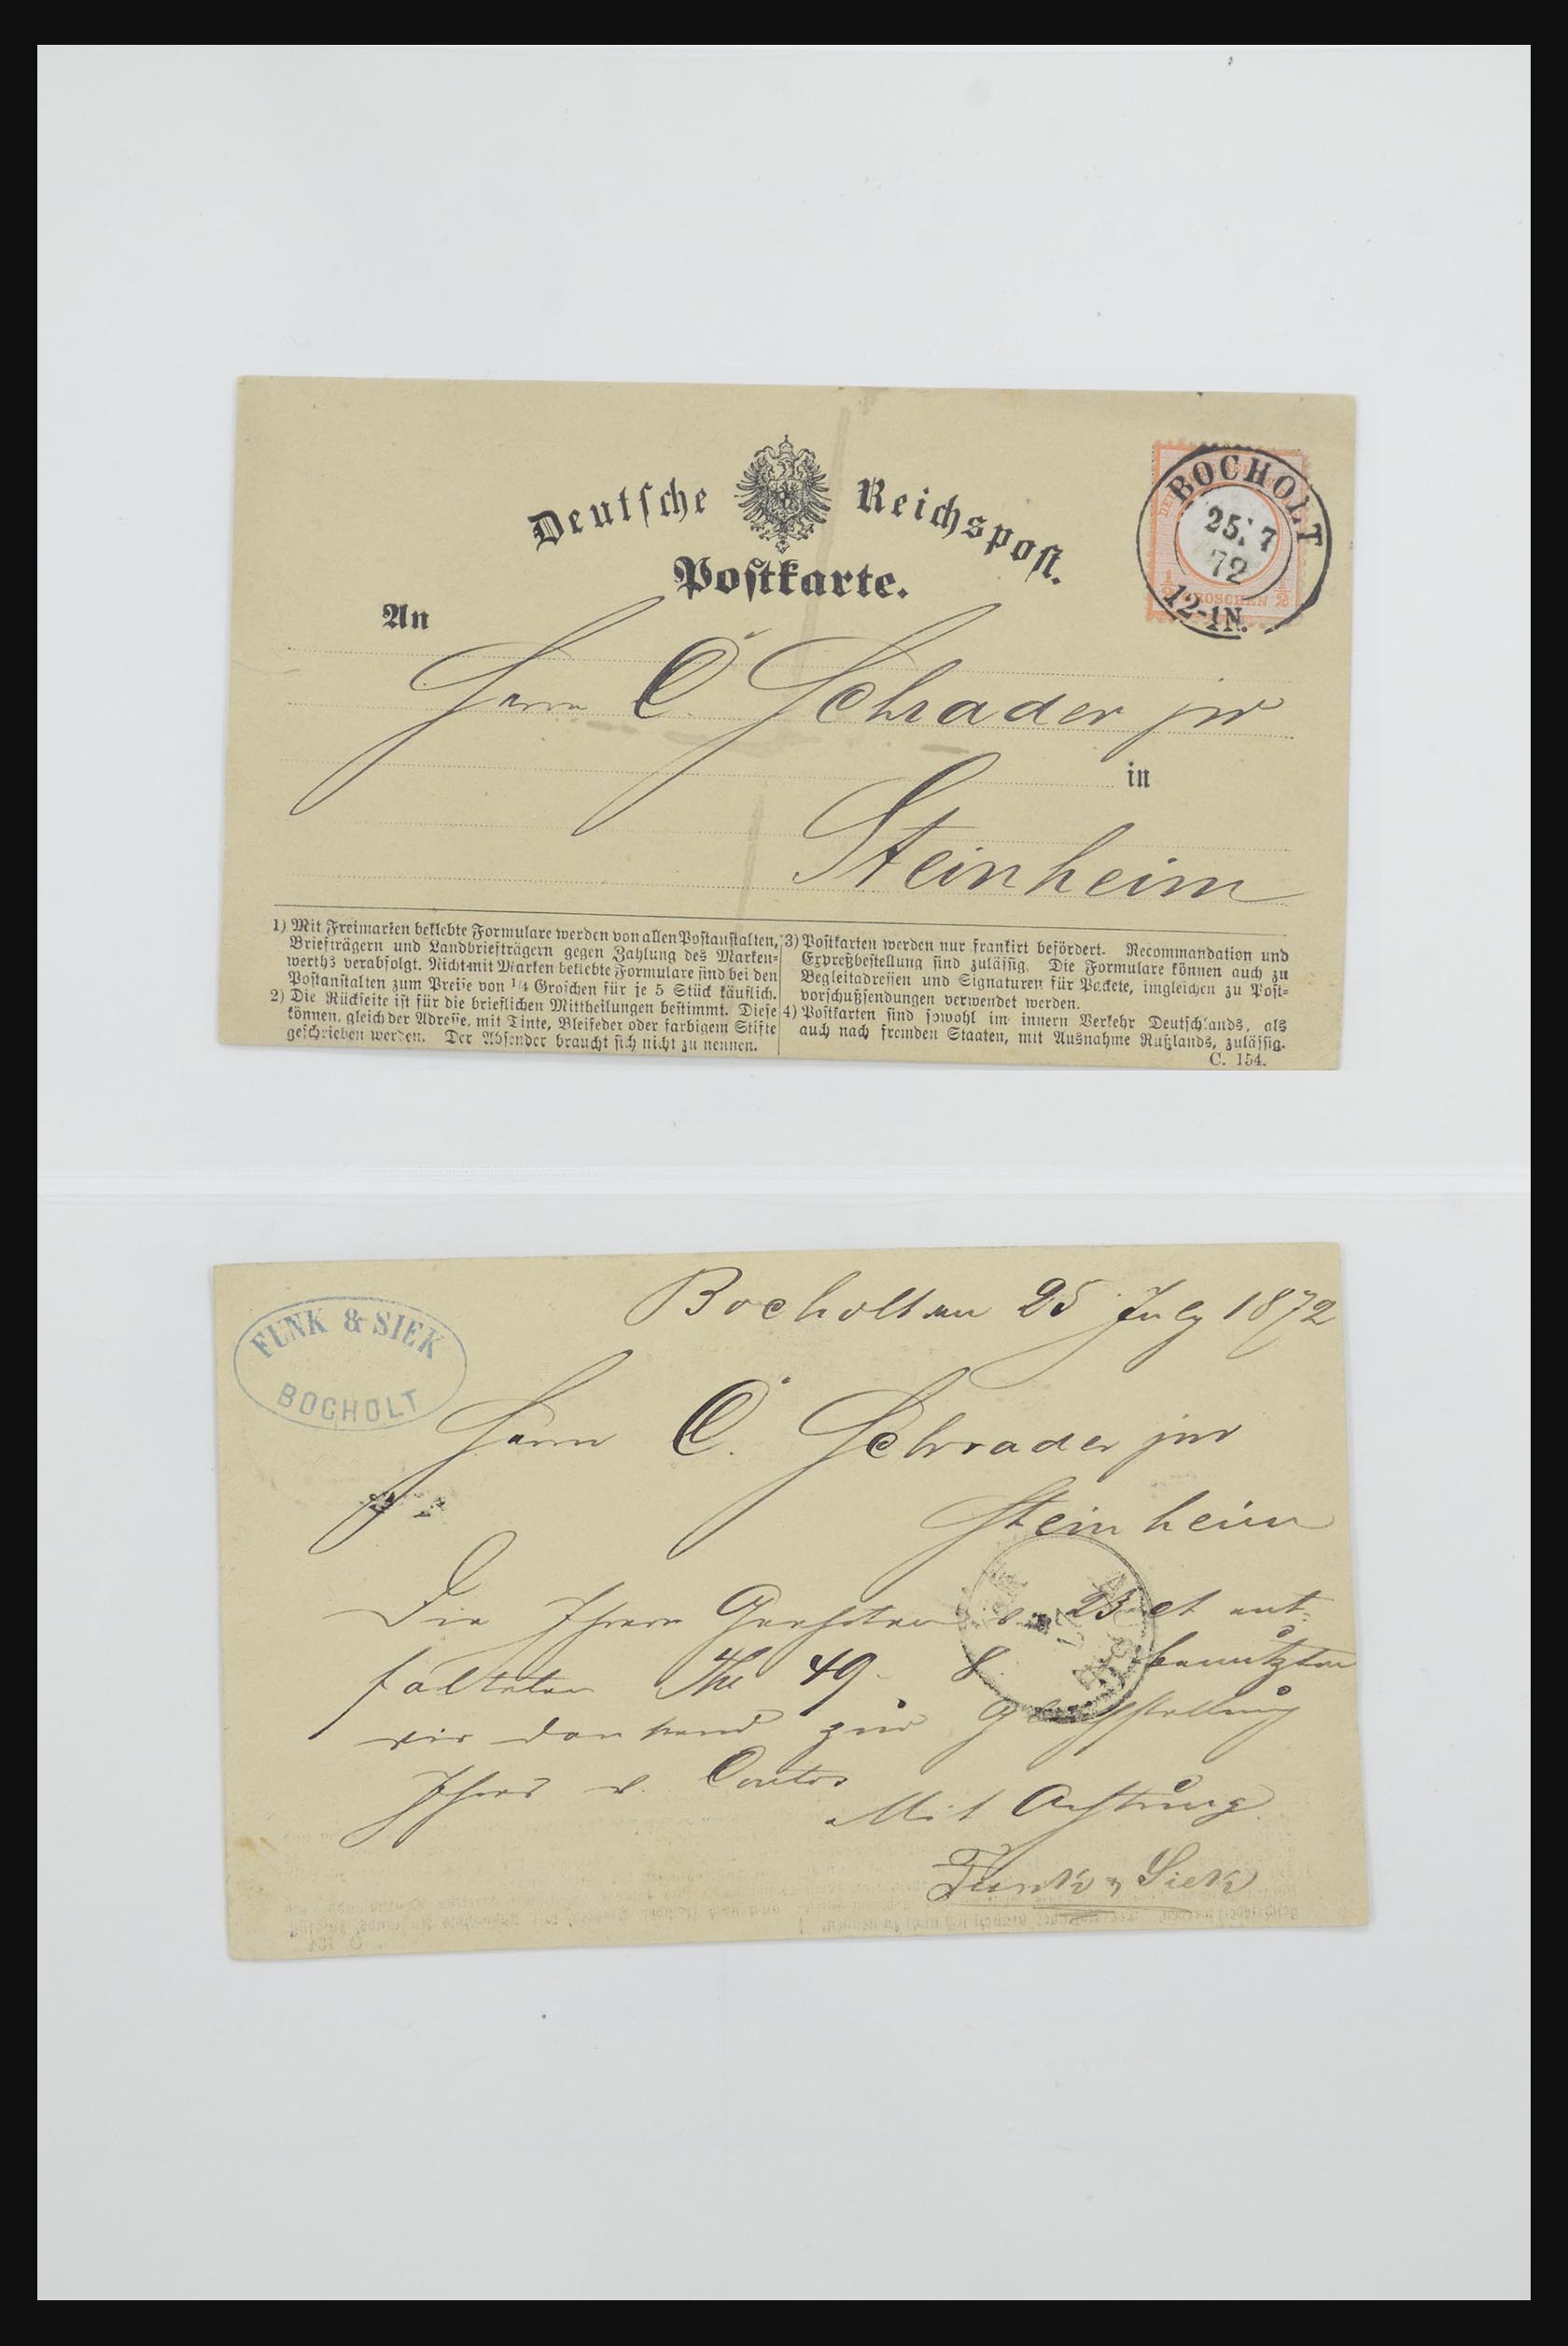 Deutsche Reichspost.
Postkarte.
BOCHOLT
25. 7
72
12-1N.
½ GROSCHEN ½
An
Herrn C. Schrader jr
in
Steinheim
1) Mit Freimarken beklebte Formulare werden von allen Postanstalten,
Briefträgern und Landbriefträgern gegen Zahlung des Marken-
werths verabfolgt. Nicht mit Marken beklebte Formulare sind bei den
Postanstalten zum Preise von 1/4 Groschen für je 5 Stück käuflich.
2) Die Rückseite ist für die brieflichen Mittheilungen bestimmt. Diese
können, gleich der Adresse, mit Tinte, Bleifeder oder farbigem Stifte
geschrieben werden. Der Absender braucht sich nicht zu nennen.
3) Postkarten werden nur frankirt befördert. Recommandation und
Expreßbestellung sind zulässig. Die Formulare können auch zu
Begleitadressen und Signaturen für Packete, imgleichen zu Post-
vorschußsendungen verwendet werden.
4) Postkarten sind sowohl im innern Verkehr Deutschlands, als
auch nach fremden Staaten, mit Ausnahme Rußlands, zulässig.
C. 154.
FUNK & SIEK
BOCHOLT
Bocholt den 25 July 1872
Herrn C. Schrader jnr
Steinheim
Die Ihrem Geehrten 23 ct ent-
falteten Thr 49 8 benutzten
wir dankend zur Glattstellung
Ihres w. Contos
Mit Achtung
Funk & Siek